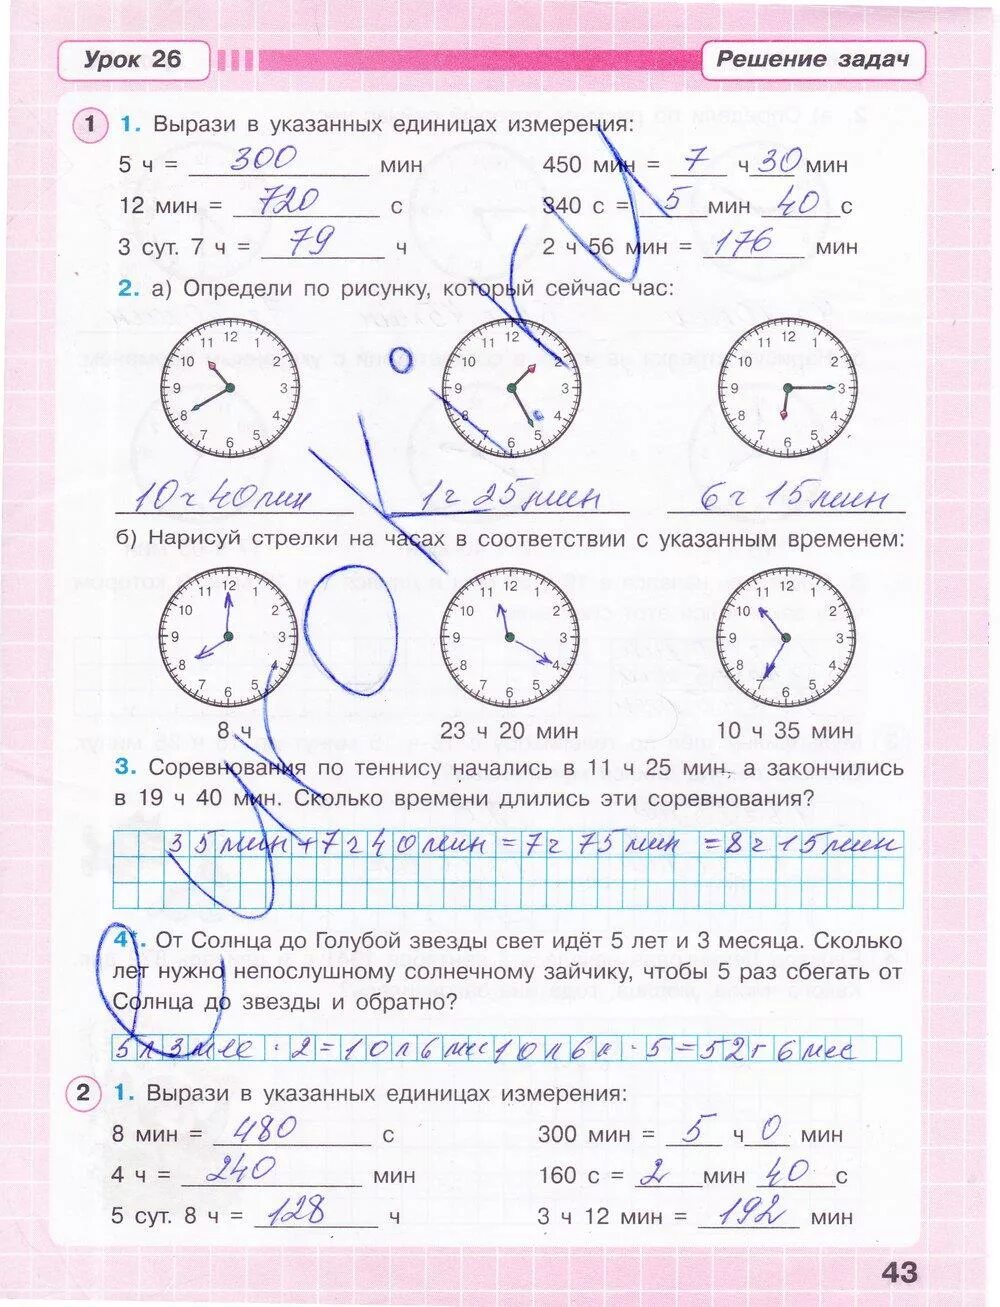 Урок 26
Решение задач
1 1. Вырази в указанных единицах измерения:
5 ч = 300 мин 450 мин = 7 ч 30 мин
12 мин = 720 с 340 с = 5 мин 40 с
3 сут. 7 ч = 79 ч 2 ч 56 мин = 176 мин
2. а) Определи по рисунку, который сейчас час:
12 1 2 3 4 5 6 7 8 9 10 11
12 1 2 3 4 5 6 7 8 9 10 11
12 1 2 3 4 5 6 7 8 9 10 11
10 ч 40 мин 1 ч 25 мин 6 ч 15 мин
б) Нарисуй стрелки на часах в соответствии с указанным временем:
12 1 2 3 4 5 6 7 8 9 10 11
12 1 2 3 4 5 6 7 8 9 10 11
12 1 2 3 4 5 6 7 8 9 10 11
8 ч 23 ч 20 мин 10 ч 35 мин
3. Соревнования по теннису начались в 11 ч 25 мин, а закончились
в 19 ч 40 мин. Сколько времени длились эти соревнования?
35 мин + 7 ч 40 мин = 7 ч 75 мин = 8 ч 15 мин
4*. От Солнца до Голубой звезды свет идёт 5 лет и 3 месяца. Сколько
лет нужно непослушному солнечному зайчику, чтобы 5 раз сбегать от
Солнца до звезды и обратно?
5 л 3 мес · 2 = 10 л 6 мес 10 л 6 м · 5 = 52 г 6 мес
2 1. Вырази в указанных единицах измерения:
8 мин = 480 с 300 мин = 5 ч 0 мин
4 ч = 240 мин 160 с = 2 мин 40 с
5 сут. 8 ч = 128 ч 3 ч 12 мин = 192 мин
43